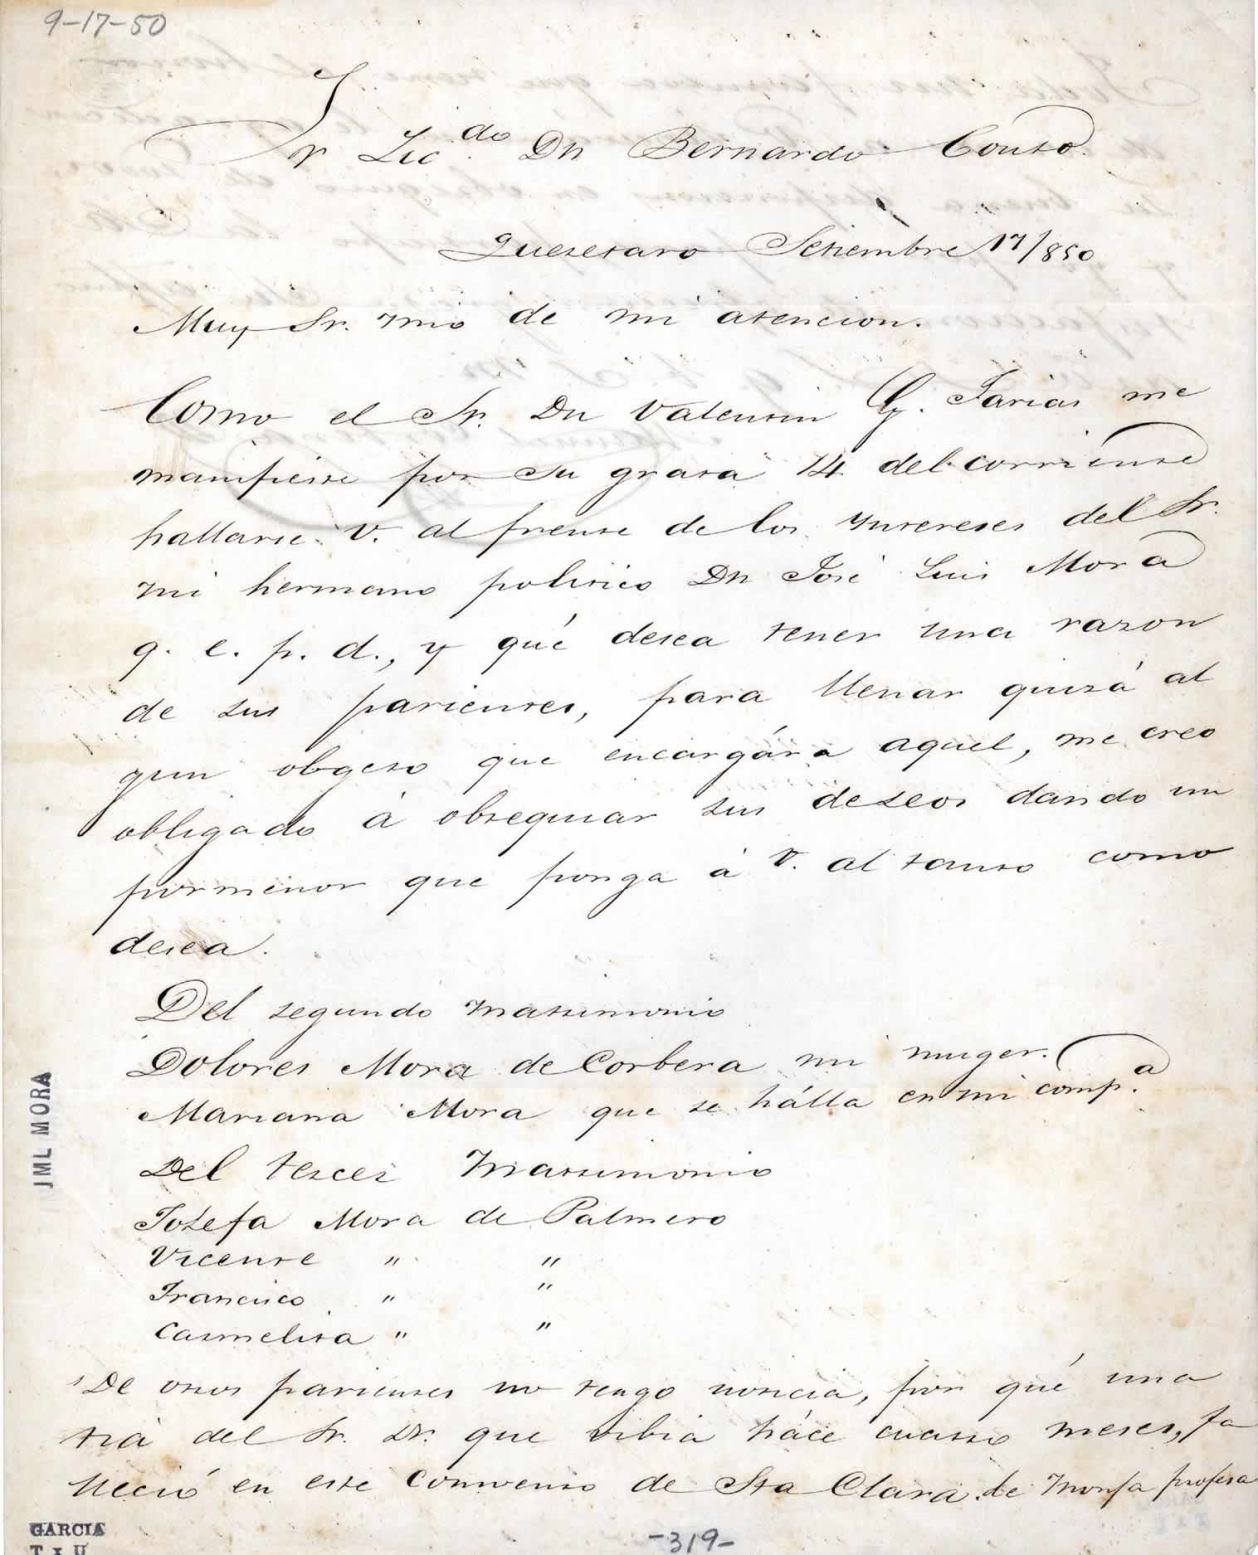 9-17-50
Sr Lic.do Dn Bernardo Couto.
Queretaro Setiembre 17/850
Muy Sr. mio de mi atencion.
Como el Sr. Dn Valentin G. Farias me
manifieste por su grata 14 del corriente
hallarse V. al frente de los Yntereses del Sr.
mi hermano politico Dn José Luis Mora
q. e. p. d., y qué desea tener una razon
de sus parientes, para llenar quizá al
gun obgeto que encargára aquel, me creo
obligado á obsequiar sus deseos dando un
pormenor que ponga á V. al tanto como
desea.
Del segundo matrimonio
Dolores Mora de Corbera mi muger.
Mariana Mora que se hálla en mi comp.a
Del tercer Matrimonio
Josefa Mora de Palmero
Vicente " "
Francisco " "
Carmelita " "
De otros parientes no tengo noticia, por qué una
tia del Sr. Dr. que vibia háce cuatro meses, fa
lleció en este Convento de Sta Clara de Monja profesa
JML MORA
GARCIA
T x U
-319-